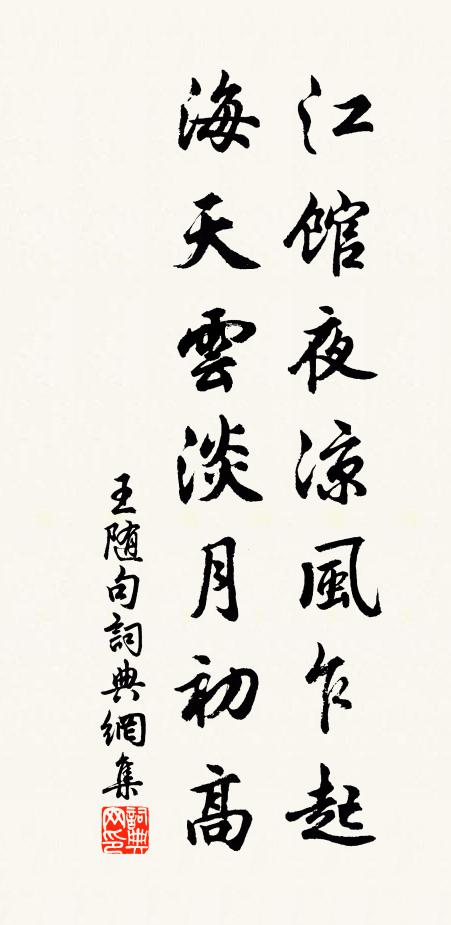 江館夜涼風乍起
海天雲淡月初高
王随句詞典網集
詞典
网印